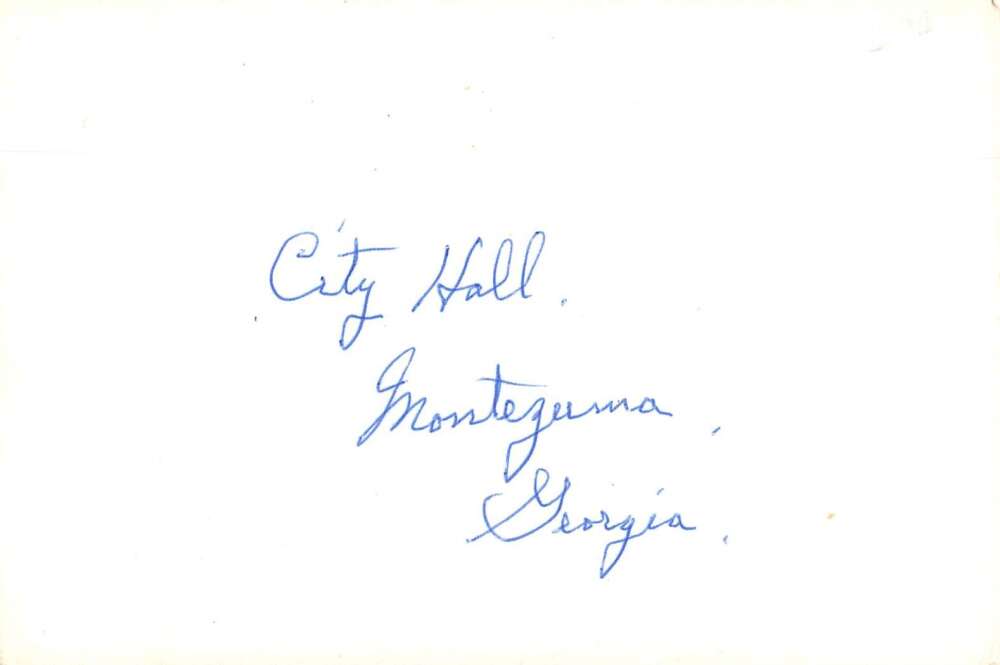 City Hall.
Montezuma,
Georgia.